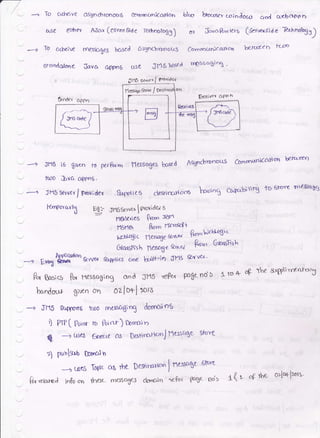 → To achieve asynchronous communication b/w browser window and webappn
use either AJax (clientside technology) or JavaRivers (serverside Technology)
→ To achieve messages based asynchronous communication between two
standalone Java appns use JMS based messaging.
JMS Server / provider
Message Store / Destination
Sender appn
JMS code
Send msg
msg
Receives the msg
Receiver appn
JMS code
→ JMS is given to perform Messages based Asynchronous communication between
two Java appns.
→ JMS Server / provider supplies destinations having capability to store messages
temporarily Eg:- JMS Server / providers
MQ Series from IBM
MSMQ from Microsoft
weblogic Message server from weblogic
GlassFish Message server from GlassFish
→ Every Application Server supplies one built-in JMS server.
For Basics for Messaging and JMS refer page no's 1 to 4 of the supplimentary
handout given on 02/04/2013
→ JMS supports two messaging domains
1) PTP (Point to Point) Domain
→ uses Queue as Destination / Message Store
2) pub/sub Domain
→ uses Topic as the Destination / Message Store
For related info on these messages domain refer page no's of the